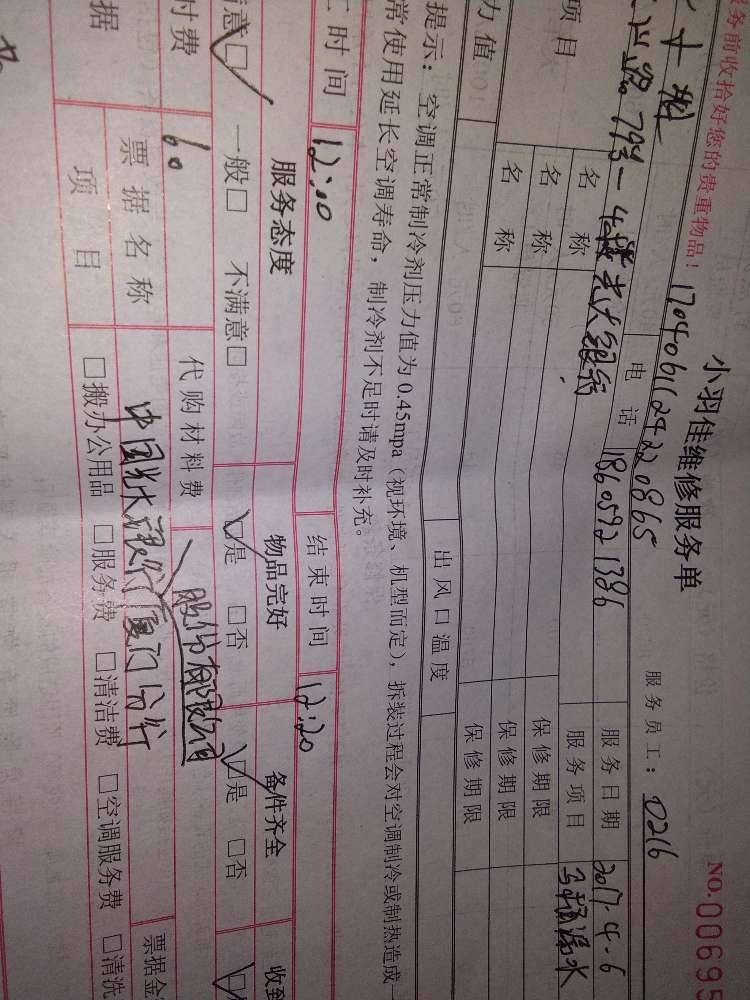 服务前收拾好您的贵重物品！
小羽佳维修服务单
NO.00695
1704061124220865
服务员工：0216
电话 18605921386 服务日期 2017.4.6
79号一 光大银行
项目 服务项目 马桶漏水
名称 保修期限
名称 保修期限
名称 保修期限
力值 出风口温度
提示：空调正常制冷剂压力值为0.45mpa（视环境、机型而定），拆装过程会对空调制冷或制热造成
常使用延长空调寿命，制冷剂不足时请及时补充。
时间 12:00 结束时间 12:20
服务态度 物品完好 备件齐全 收到
满意□ 一般□ 不满意□ □是 □否 □是 □否
时费 60 代购材料费
股份有限公司
据 票据名称 中国光大银行厦门分行 票据金
项目 □搬办公用品 □服务费 □清洁费 □空调服务费 □清洗